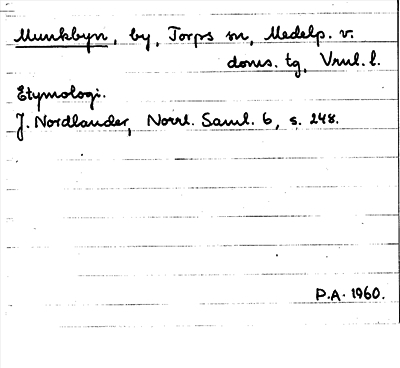 Munkbyn, by, Torps sn, Medelp. v.
doms. tg, Vrnl. l.
Etymologi.
J. Nordlander, Norrl. Saml. 6, s. 248.
P.A. 1960.